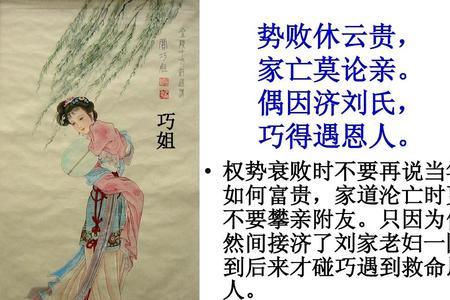 巧姐
势败休云贵，
家亡莫论亲。
偶因济刘氏，
巧得遇恩人。
• 权势衰败时不要再说当
如何富贵，家道沦亡时
不要攀亲附友。只因为
然间接济了刘家老妇一
到后来才碰巧遇到救命
人。